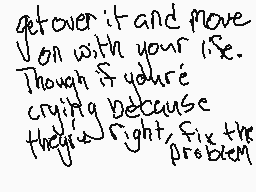 get over it and move
on with your life.
Though if you're
crying because
they're right, fix the
problem